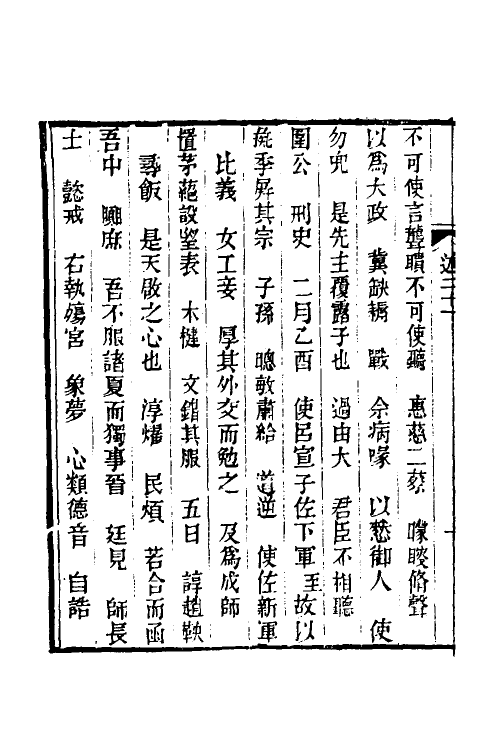 不可使言聾聵不可使聽　惠慈二蔡　矇瞍脩聲
以爲大政　冀缺耨　戰　余病喙　以憖御人　使
勿兜　是先主覆露子也　過由大　君臣不相聽
圍公　刑史　二月乙酉　使呂宣子佐下軍　至故以
撓季屛其宗　子孫　聰敏肅給　道逆　使佐新軍
比義　女工妾　厚其外交而勉之　及爲成師
置茅蕝設望表　木楗　文錯其服　五日　諄趙鞅
尋飯　是天啟之心也　淳燿　民煩　若合而函
吾中　興庶　吾不服諸夏而獨事晉　廷見　師長
士　懿戒　右執殤宮　象夢　心類德音　自誥